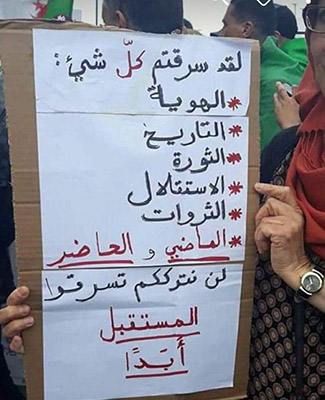 لقد سرقتم كلّ شيئ:
* الهوية
* التاريخ
* الثورة
* الاستقلال
* الثروات
* الماضي و الحاضر
لن نترككم تسرقوا
المستقبل
أبدًا